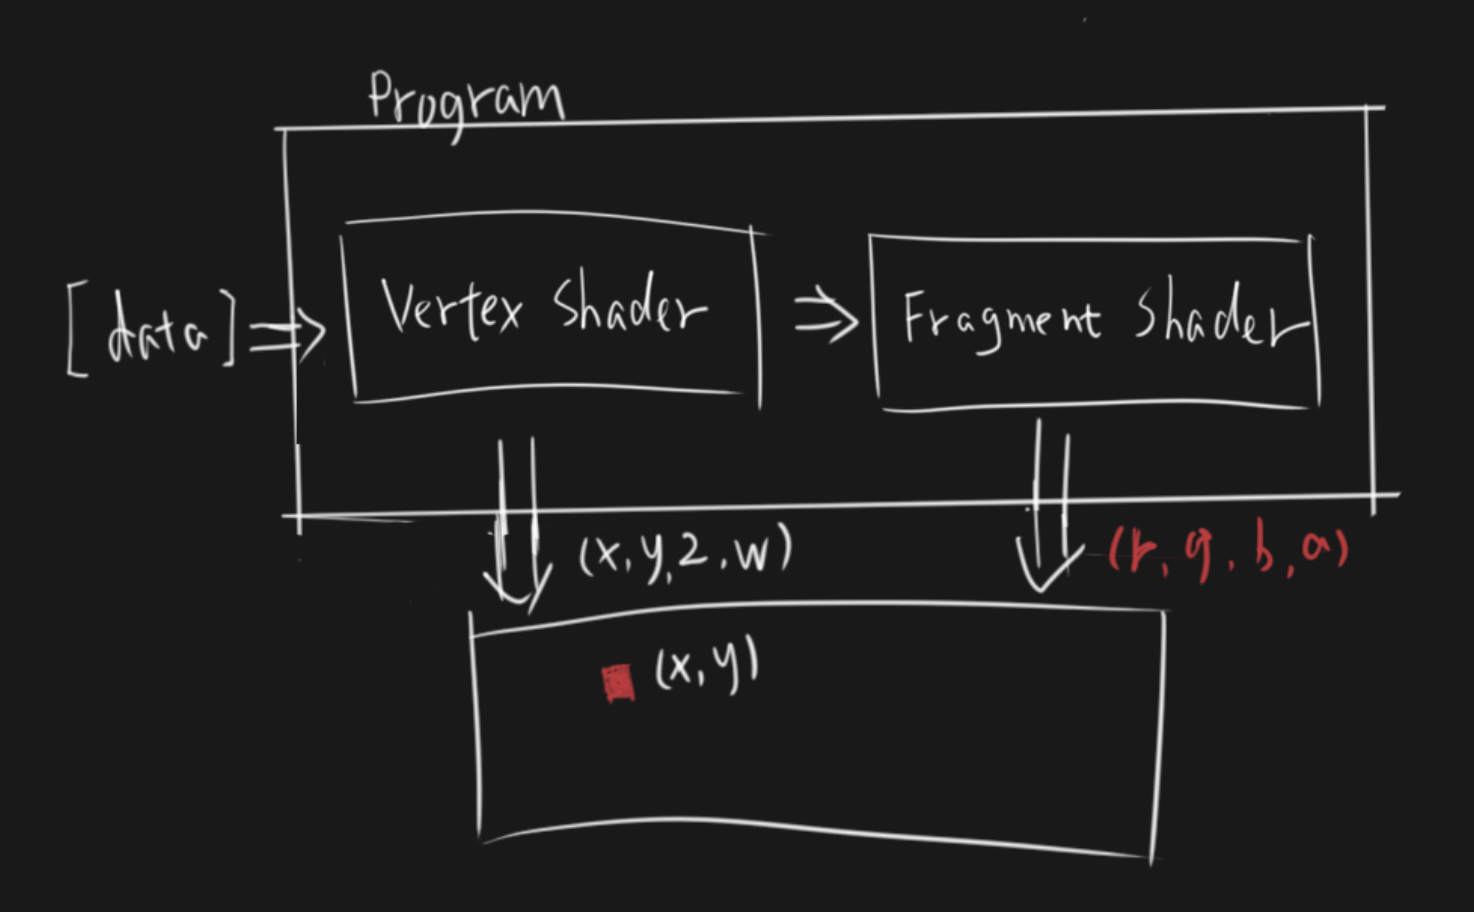 Program
[data]
Vertex Shader
Fragment Shader
(x,y,z,w)
(r,g,b,a)
(x,y)